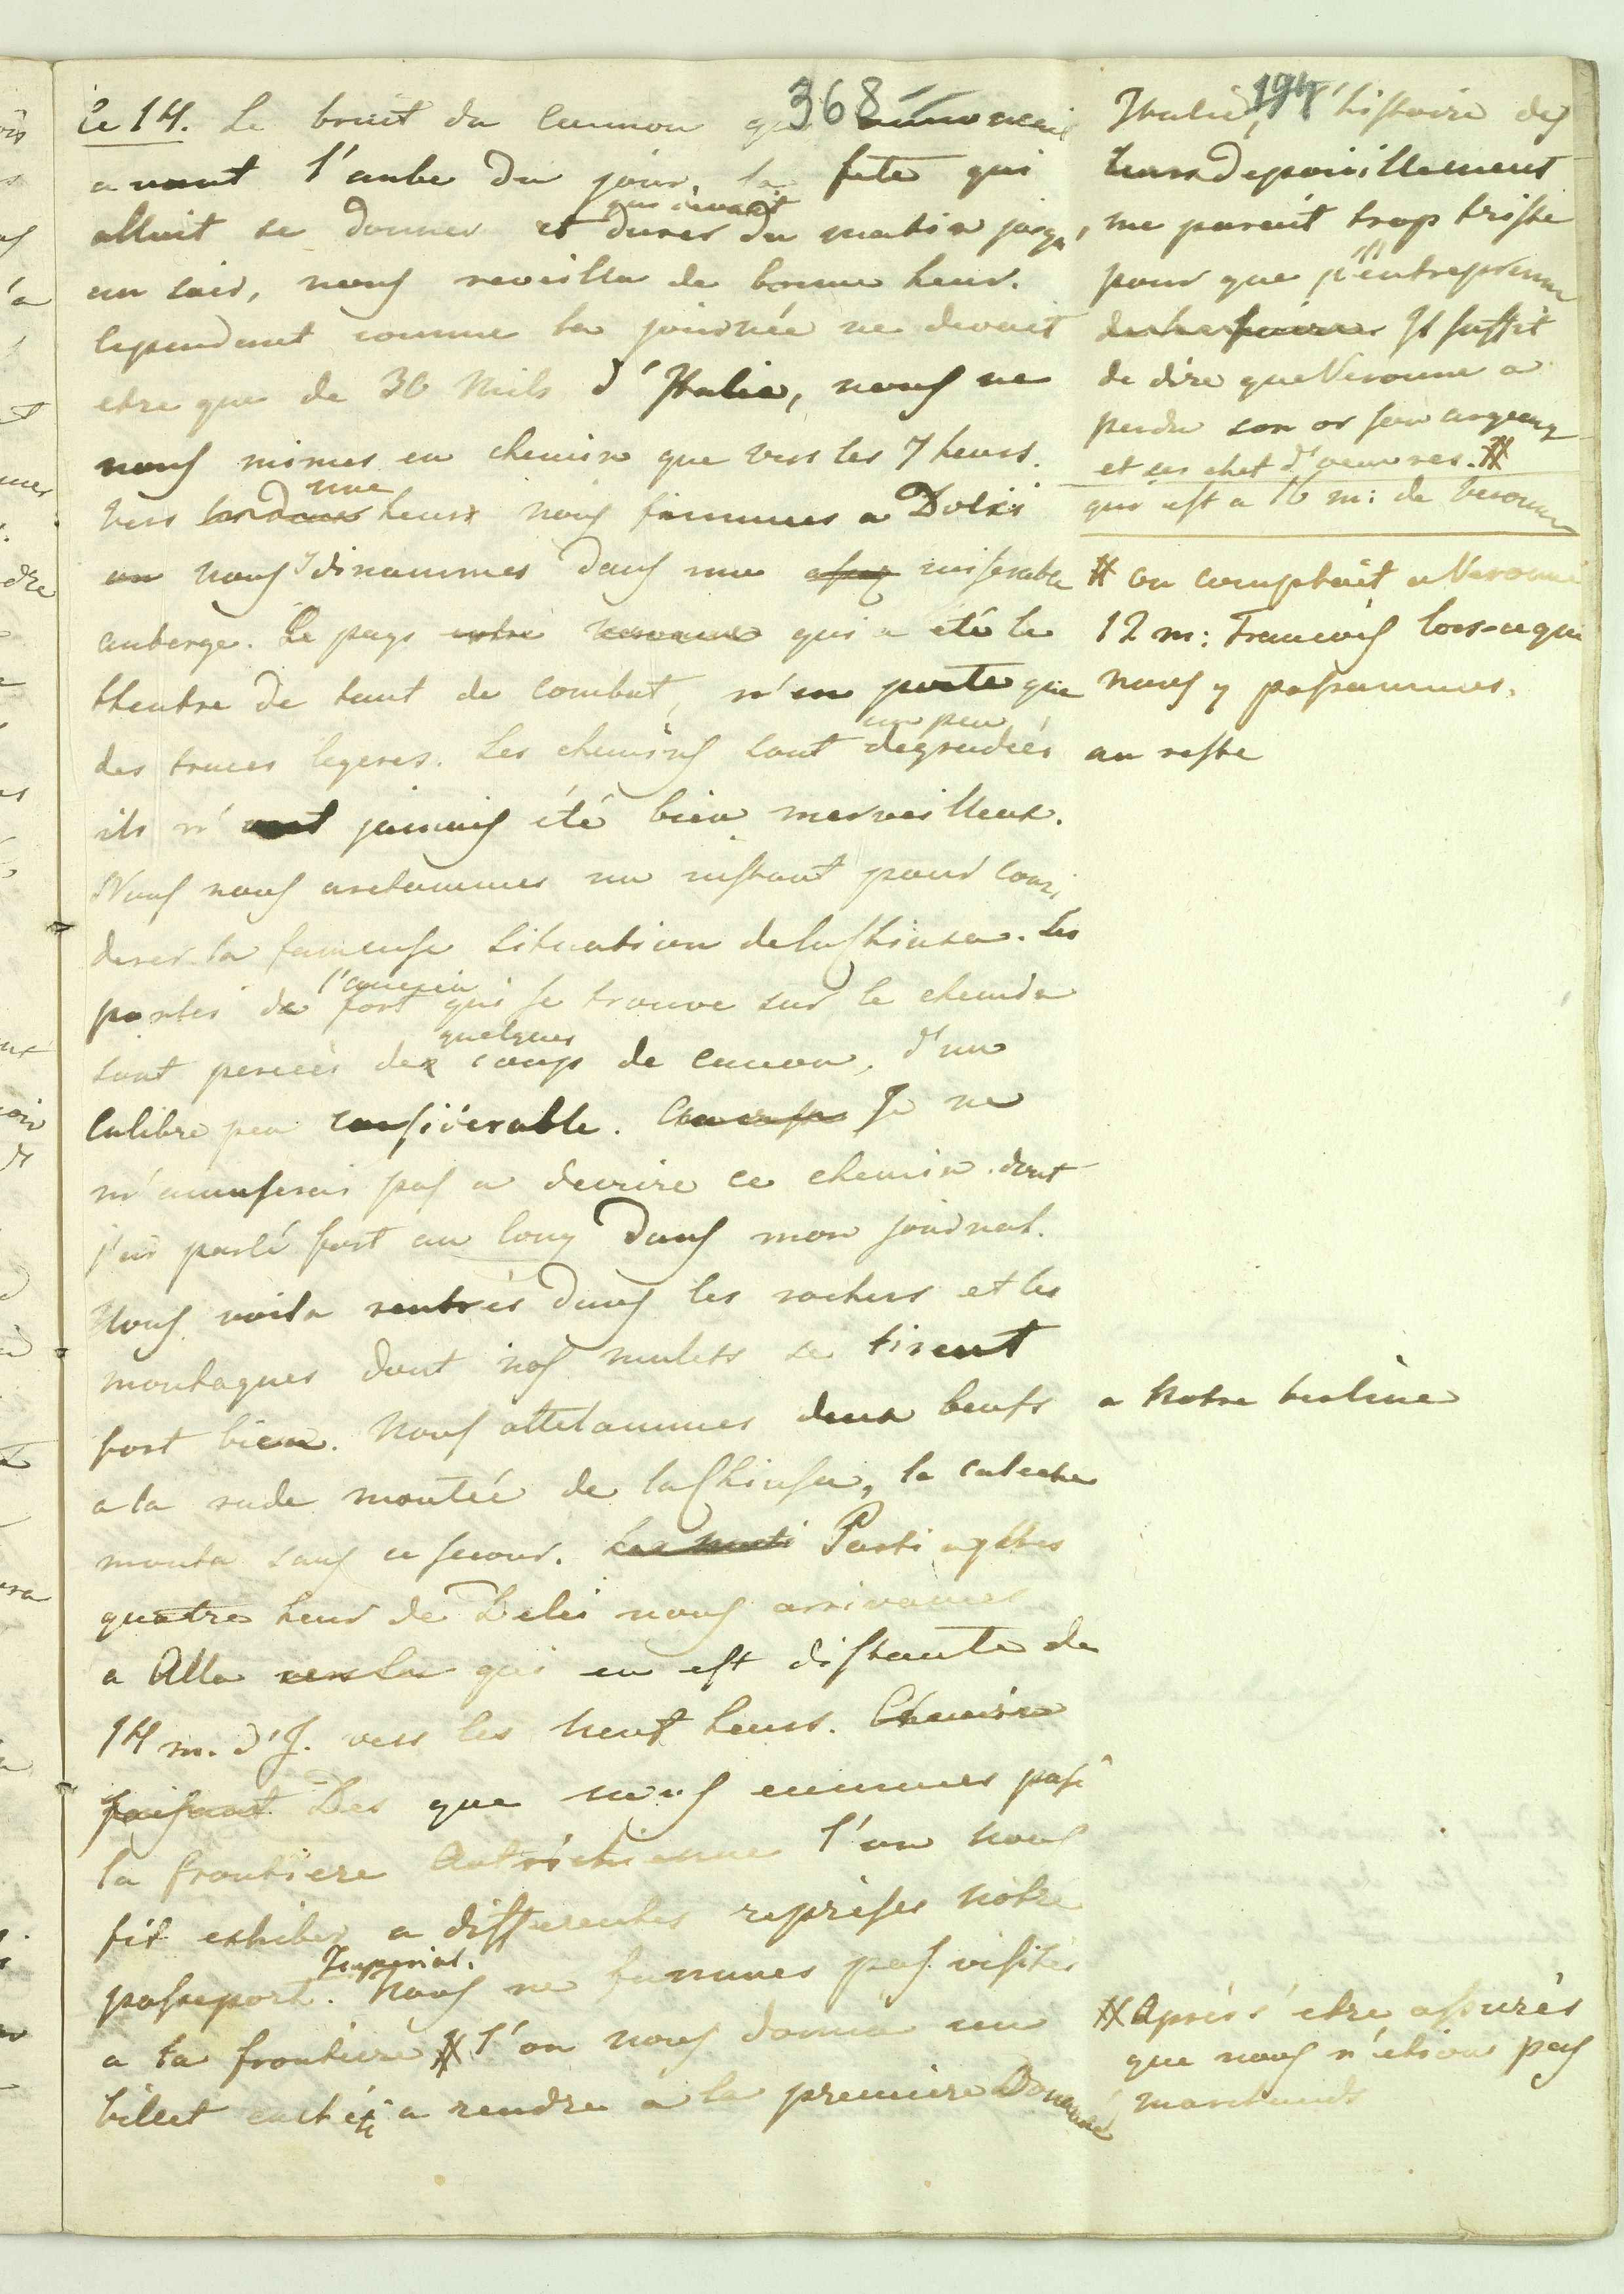 368
194
Ce 14. Le bruit du cannon qui annoncait
avant l'aube du jour, la fete qui
qui devoit
alloit se donner et durer du matin jusqu'
au soir, nous reveilla de bonne heur.
Cependant comme la journée ne devoit
etre que de 30 Mils d'Italie, nous ne
nous mimes en chemin que vers les 7 heurs.
une
Vers les deux heurs nous fummes a Dolci
ou nous y dinammes dans une assez miserable
auberge. Le pays entre Veronne qui a été le
theatre de tant de combat, n'en porte que
un peu
des traces legeres. Les chemins sont degradées
ils n'ont jamais été bien merveilleux.
Nous nous aretammes un instant pour consi
derer la fameuse situation de la Chiusa. Les
l'ancien
portes de fort qui se trouve sur le chemin
quelques
sont percées des coups de cannon, d'un
Calibre peu considerable. Je ne
m'amuserai pas a decrire ce chemin dont
j'ai parlé fort au long dans mon journal.
Nous voila rentrés dans les rochers et les
montagnes dont nos mulets se tirent
fort bien. Nous attelammes deux beufs
a la rude montée de la Chiusa, la caleche
monta sans ce secour. Les Parti après les
quatre heur de Dolci nous arrivames
a Alla vers la qui en est distante de
14 m. d'I. vers les neuf heurs. Chemin
faisant Des que nous eummes passé
la frontiere Autrichienne l'on nous
fit exhiber a differentes reprises notre
Imperial.
passeport. Nous ne fummes pas visités
a la frontiere # l'on nous donna un
billet cacheté a rendre a la premiere Douanne
Italie, l'histoire des
leurs depouillement
me parait trop triste
pour que j'entreprenne
de la faire. Il suffit
de dire que Veronne a
perdu son or son argent
et ses chef d'oeuvres. #
qui est a 16 m: de Veronne
# on comptait a Veronne
12 m: Francois lors-que
nous y passammes.
au reste
a notre berline
# Après s'etre assurés
que nous n'etions pas
marchands